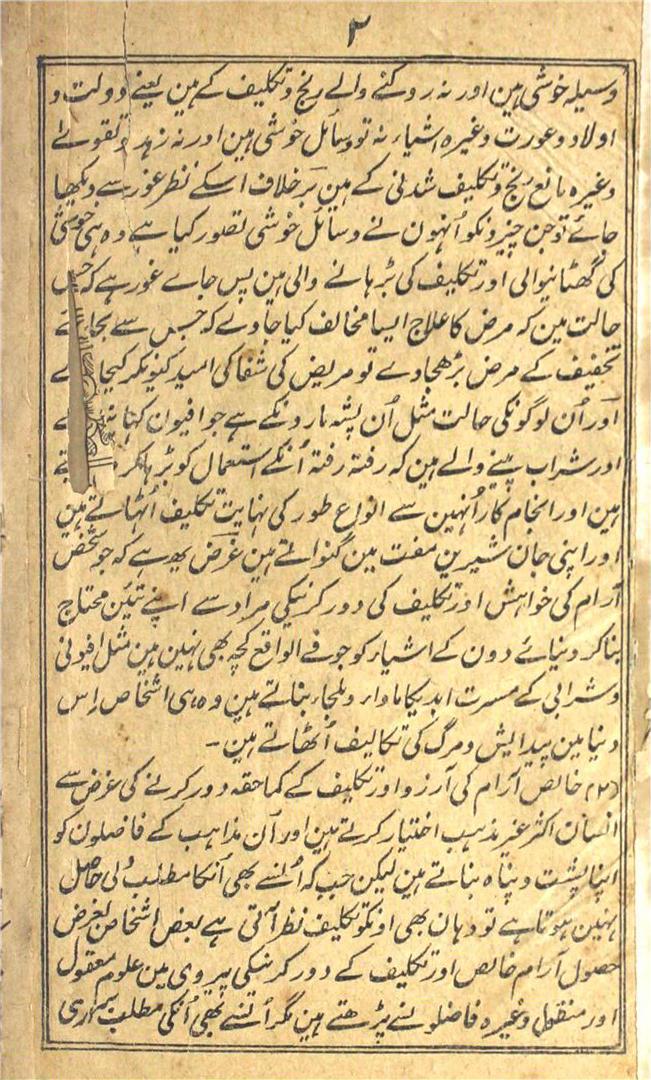 ۲
وسیلہ خوشی ہین اور نہ روکنے والے رنج و تکلیف کے ہین یعنے دولت و
اولاد و عورت وغیرہ اشیاء نہ تو وسائل خوشی ہین اور نہ زہد و تقوےٰ
وغیرہ مانع رنج و تکلیف شدنی کے ہین برخلاف اسکے نظر غور سے دیکھا
جائے تو جن چیزونکو اُنہون نے وسائل خوشی تصور کیا ہے وہ ہی خوشی
کی گھٹانیوالی اور تکلیف کی بڑہانے والی ہین پس جاے غور ہے کہ جس
حالت مین کہ مرض کا علاج ایسا مخالف کیا جاوے کہ جس سے بجائے
تخفیف کے مرض بڑھجاوے تو مریض کی شفا کی امید کیونکر کیجا
اور اُن لوگونکی حالت مثل اُن پشہ مارونکے ہے جو افیون کہا
اور شراب پینے والے ہین کہ رفتہ رفتہ اُنکے استعمال کو بڑہاکر
ہین اور انجام کار اُنہین سے انواع طور کی نہایت تکلیف اُٹہاتے ہین
اور اپنی جان شیرین مفت مین گنواتے ہین غرض یہ ہے کہ جو شخص
آرام کی خواہش اور تکلیف کی دور کرنیکی مراد سے اپنے تئین محتاج
بناکر دنیائے دون کے اشیاء کو جو فے الواقع کچھ بھی نہین ہین مثل افیونی
و شرابی کے مسرت ابدیکا ماوا و ملجاء بناتے ہین وہ ہی اشخاص اِس
دنیا مین پیدایش و مرگ کی تکالیف اُٹھاتے ہین۔
(۲) خالص آرام کی آرزو اور تکلیف کے کماحقہ دور کرنے کی غرض سے
انسان اکثر غیر مذہب اختیار کرتے ہین اور اُن مذاہب کے فاضلون کو
اپنا پشت و پناہ بناتے ہین لیکن جب کہ اُنسے بھی اُنکا مطلب دلی حاصل
نہین ہوتا ہے تو وہان بھی اونکو تکلیف نظر آتی ہے بعض اشخاص بغرض
حصول آرام خالص اور تکلیف کے دور کرنیکی پیروی مین علوم معقول
اور منقول وغیرہ فاضلونسے پڑھتے ہین مگر اُنسے بھی اُنکی مطلب براری